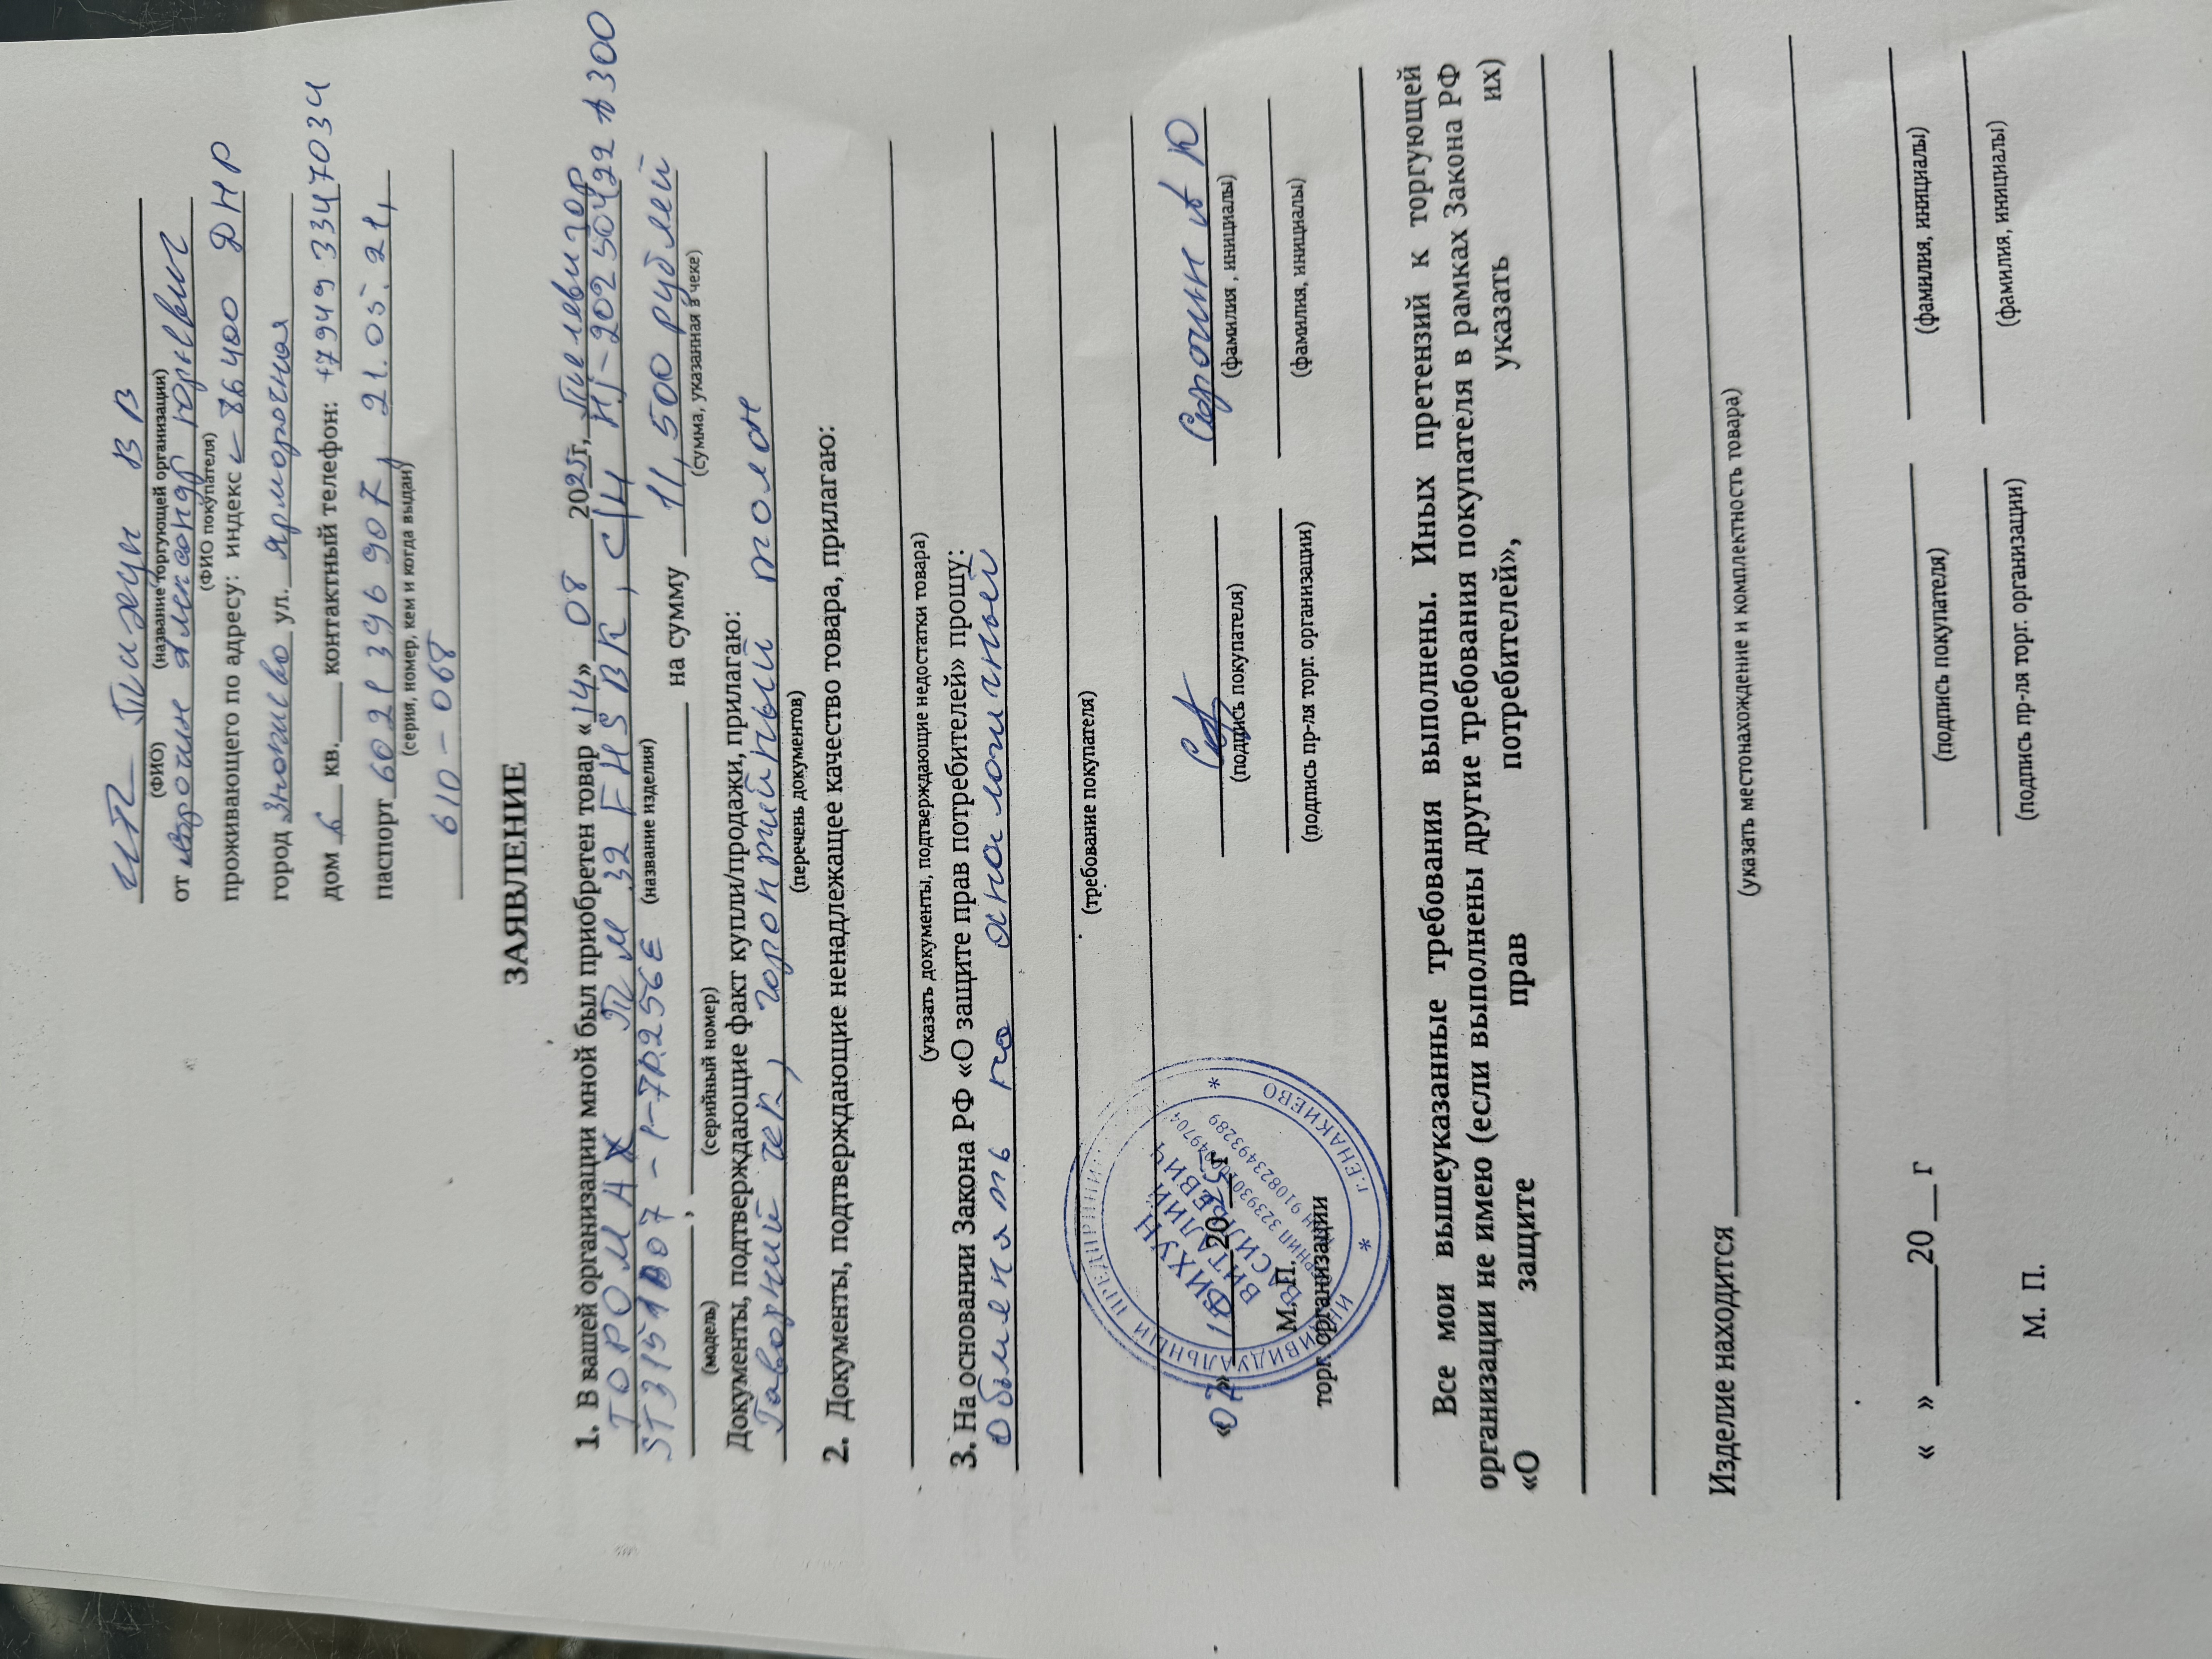 ИП Тихун В В
(ФИО) (название торгующей организации)
от Сорочин Александр Юрьевич
(ФИО покупателя)
проживающего по адресу: индекс 86400 ДНР
город Енакиево ул. Ярмарочная
дом 6 кв.____ контактный телефон: +7949 334 7034
паспорт 6021 396 907, 21.05.21,
(серия, номер, кем и когда выдан)
610-068
ЗАЯВЛЕНИЕ
1. В вашей организации мной был приобретен товар «14» 08 2025г, Телевизор
TOPOMAX TM 32 FHSBK, С/Н HJ-20250422
(название изделия)
-1-7D256E ____, ____ на сумму 11,500 рублей
(модель) (серийный номер) (сумма, указанная в чеке)
Документы, подтверждающие факт купли/продажи, прилагаю:
Товарний чек, гарантийный талон
(перечень документов)
2. Документы, подтверждающие ненадлежащее качество товара, прилагаю:
(указать документы, подтверждающие недостатки товара)
3. На основании Закона РФ «О защите прав потребителей» прошу:
Обменять на аналогичный
(требование покупателя)
«07» 10 2025 г
Сорочин А Ю
(подпись покупателя) (фамилия , инициалы)
М.П.
торг. организации
(подпись пр-ля торг. организации) (фамилия, инициалы)
ИНДИВИДУАЛЬНЫЙ ПРЕДПРИНИМ
* г.ЕНАКИЕВО *
ТИХУН
ВИТАЛИЙ
ВАСИЛЬЕВИЧ
Все мои вышеуказанные требования выполнены. Иных претензий к торгующей
организации не имею (если выполнены другие требования покупателя в рамках Закона РФ
«О защите прав потребителей», указать их)
Изделие находится
(указать местонахождение и комплектность товара)
« » ____20__ г
(подпись покупателя) (фамилия, инициалы)
М. П.
(подпись пр-ля торг. организации) (фамилия, инициалы)